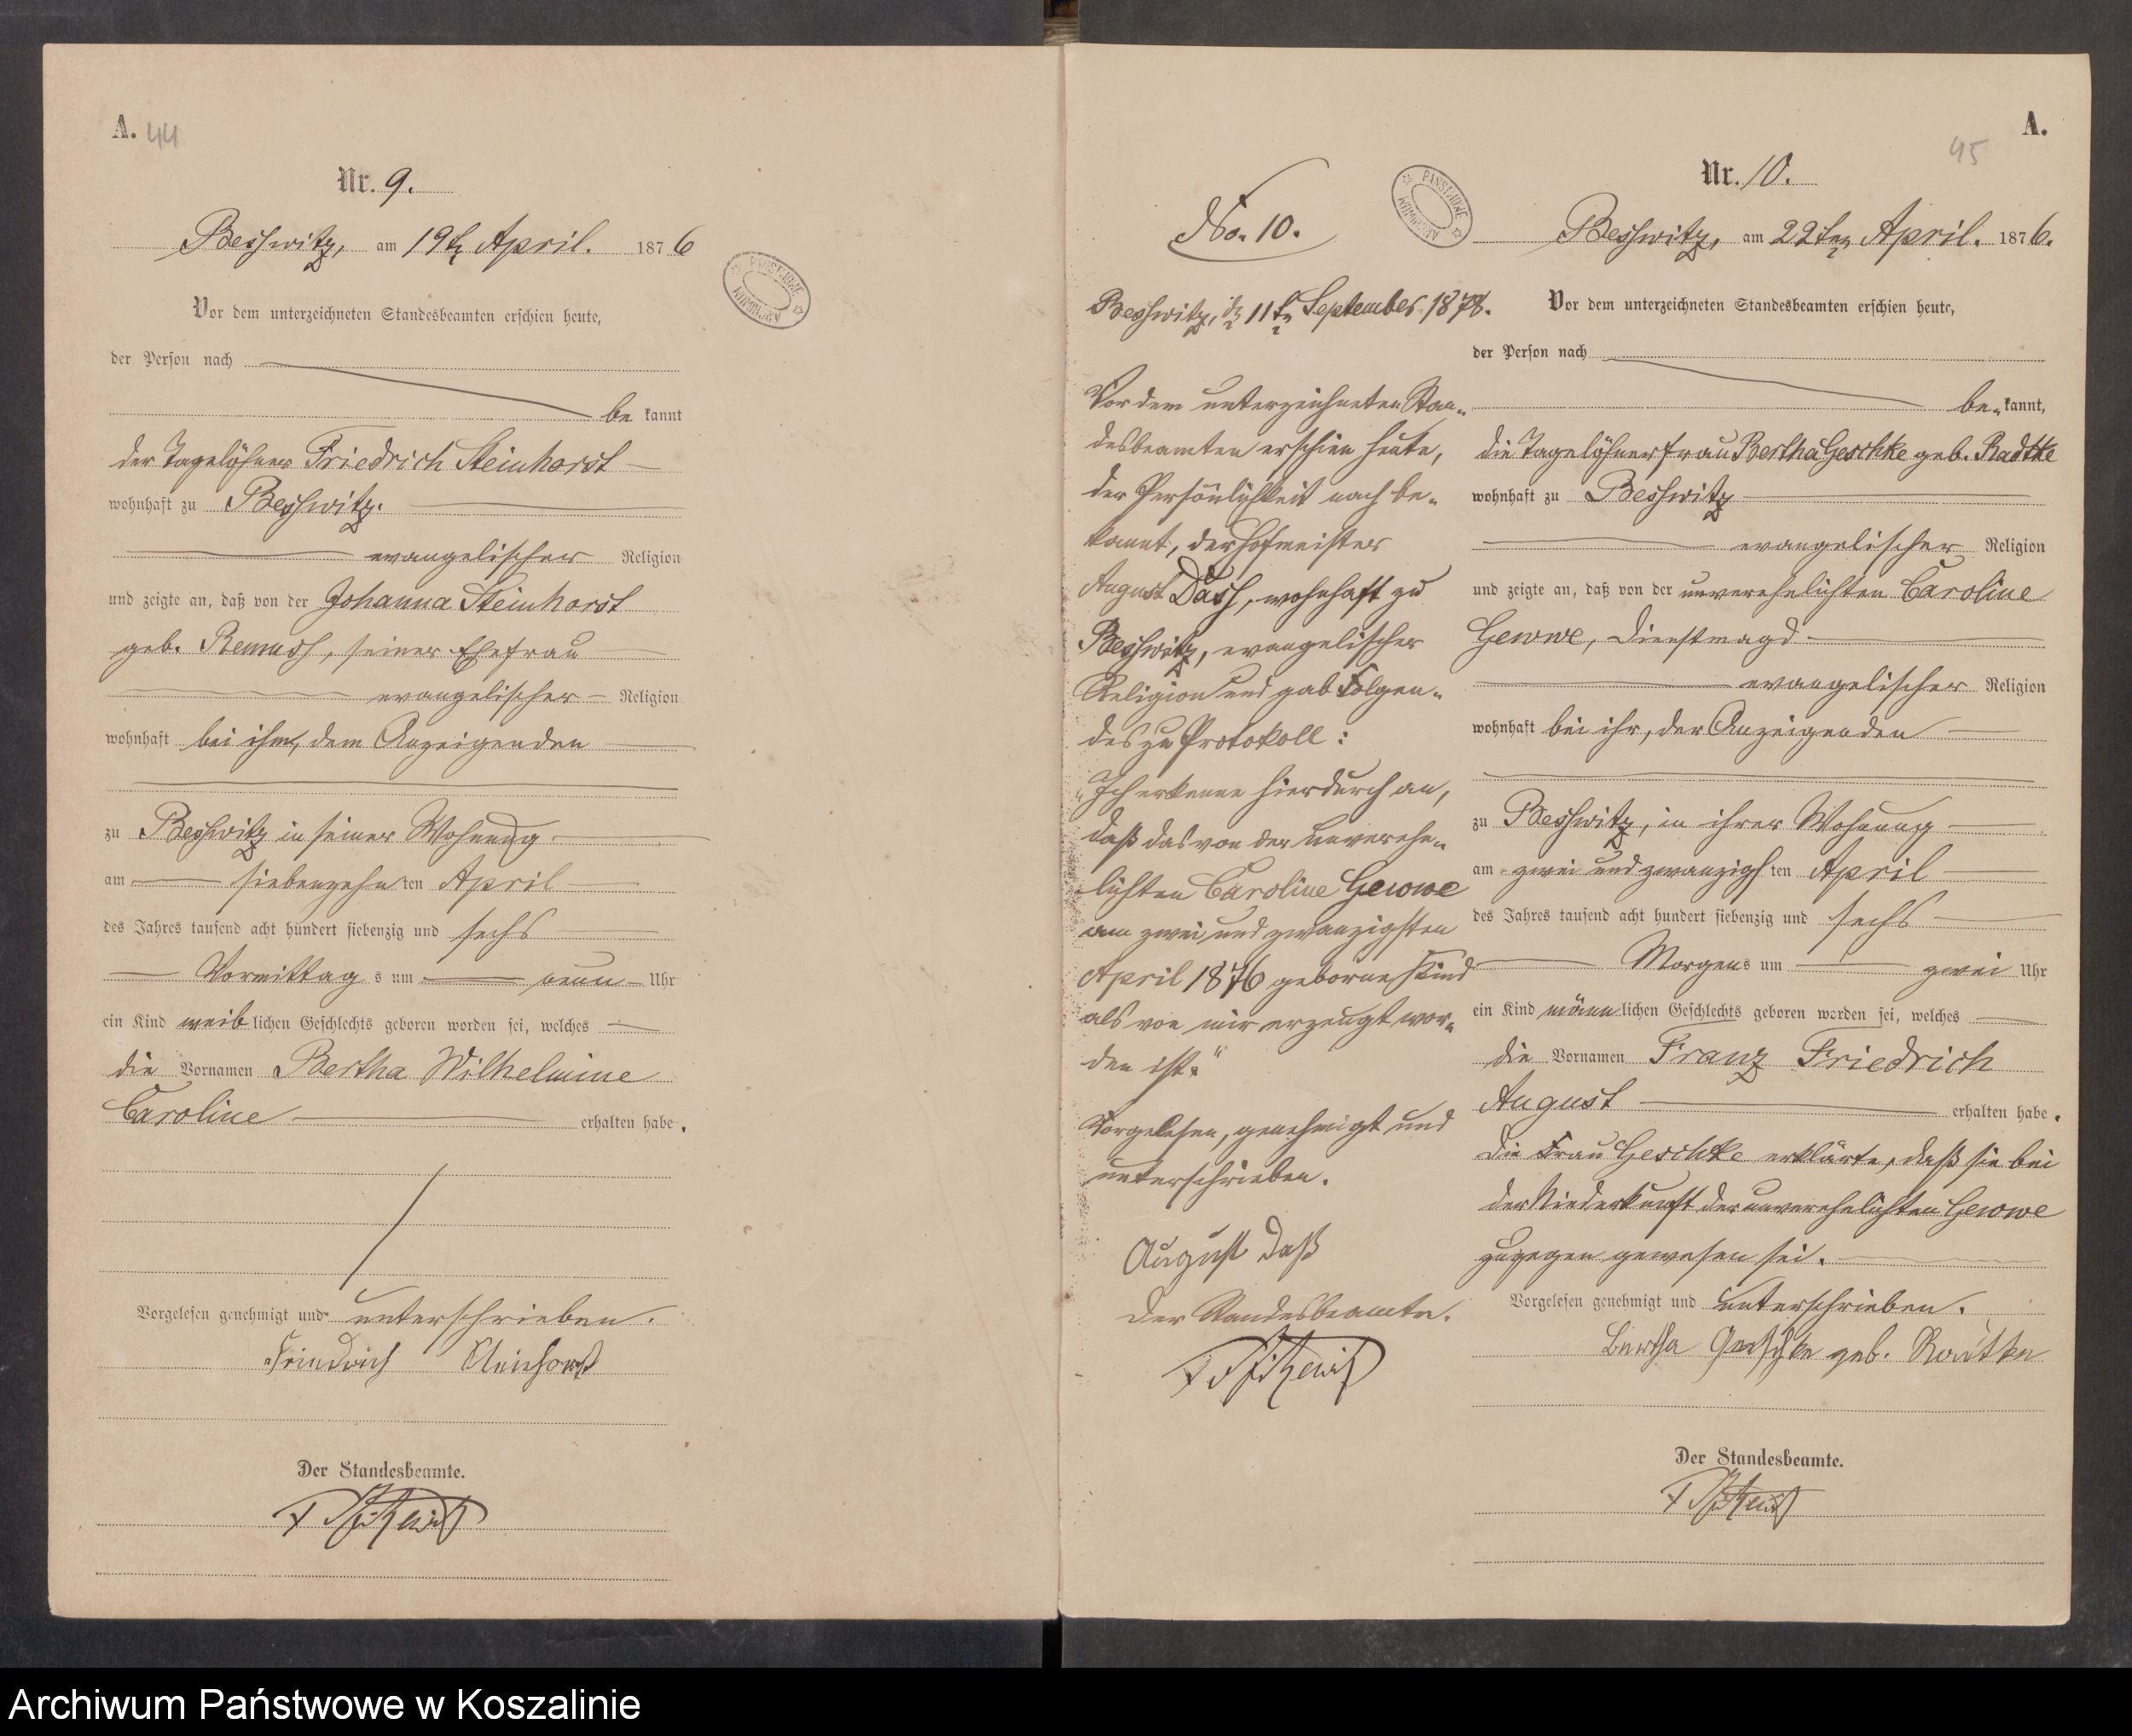 A. 44
Nr. 9.
Besswitz, am 19ten April. 1876
Vor dem unterzeichneten Standesbeamten erschien heute,
der Person nach
bekannt
der Tagelöhner Friedrich Steinhorst
wohnhaft zu Besswitz.
evangelischer Religion
und zeigte an, daß von der Johanna Steinhorst
geb. seiner Ehefrau
evangelischer Religion
wohnhaft bei ihm, dem Anzeigenden
zu Besswitz in seiner Wohnung
am siebenzehnten April
des Jahres tausend acht hundert siebenzig und sechs
Vormittags um neun Uhr
ein Kind weiblichen Geschlechts geboren worden sei, welches
die Vornamen Bertha Wilhelmine
Caroline erhalten habe.
Vorgelesen genehmigt und unterschrieben.
Friedrich Steinhorst
Der Standesbeamte.
No. 10.
PANSTWOWE ARCHIWUM
Besswitz, den 11ten September 1878.
Vor dem unterzeichneten Stan-
desbeamten erschien heute,
der Persönlichkeit nach be-
kannt, der Hofmeister
August Dass, wohnhaft zu
Besswitz, evangelischer
Religion und gab Folgen-
des zu Protokoll:
"Ich erkenne hierdurch an,
daß das von der unvereh-
lichten Caroline Gewwe
am zwei und zwanzigsten
April 1876 geborne Kind
als von mir erzeugt wor-
den ist."
Vorgelesen, genehmigt und
unterschrieben.
August Daß
Der Standesbeamte.
A.
45
Nr. 10.
Besswitz, am 22ten April. 1876.
Vor dem unterzeichneten Standesbeamten erschien heute,
der Person nach
be-kannt,
die Tagelöhnerfrau Bertha Geschke geb. Radtke
wohnhaft zu Besswitz
evangelischer Religion
und zeigte an, daß von der unverehelichten Caroline
Gewwe, Dienstmagd
evangelischer Religion
wohnhaft bei ihr, der Anzeigenden
zu Besswitz, in ihrer Wohnung
am zwei und zwanzigsten April
des Jahres tausend acht hundert siebenzig und sechs
Morgens um zwei Uhr
ein Kind männlichen Geschlechts geboren worden sei, welches
die Vornamen Franz Friedrich
August erhalten habe.
Die Frau Geschke erklärte, daß sie bei
der Niederkunft der unverehelichten Gewwe
zugegen gewesen sei.
Vorgelesen genehmigt und unterschrieben.
Bertha Geschke geb.
Der Standesbeamte.
Archiwum Państwowe w Koszalinie